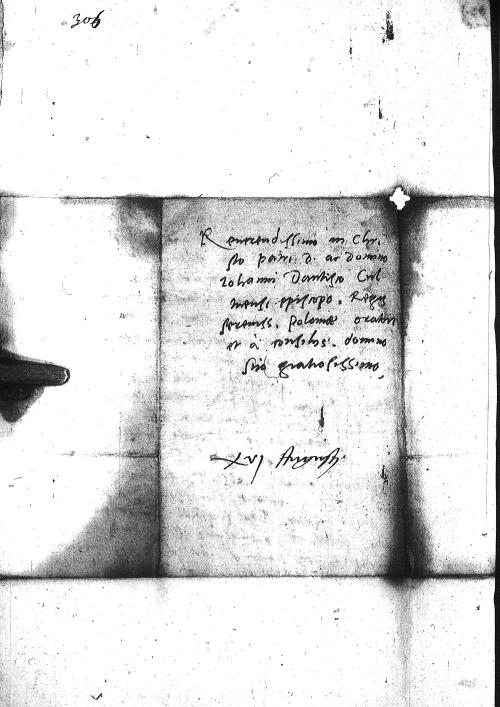 306
Reverendissimo in Chri
sto patri d. ac domino
Iohanni Dantisco Cul
mensi episcopo. Regis
sereniss. Poloniae oratori
et a consiliis. domino
suo gratiosissimo,
xvj Augusti